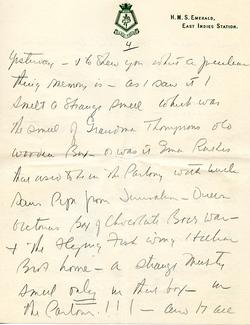 H.M.S. EMERALD,
EAST INDIES STATION.
4
Yesterday – & to show you what a peculiar
thing memory is – as I saw it I
smelt a strange smell which was
the smell of Grandma Thompsons old
wooden Box – or was it
that used to be in the Pantry with
from Jerusalem – Queer
Box of Chocolate Boer War –
& the Flying Fish wing
Brot home – a strange musty
smell only in that box – in
the Pantry!!! – and it all